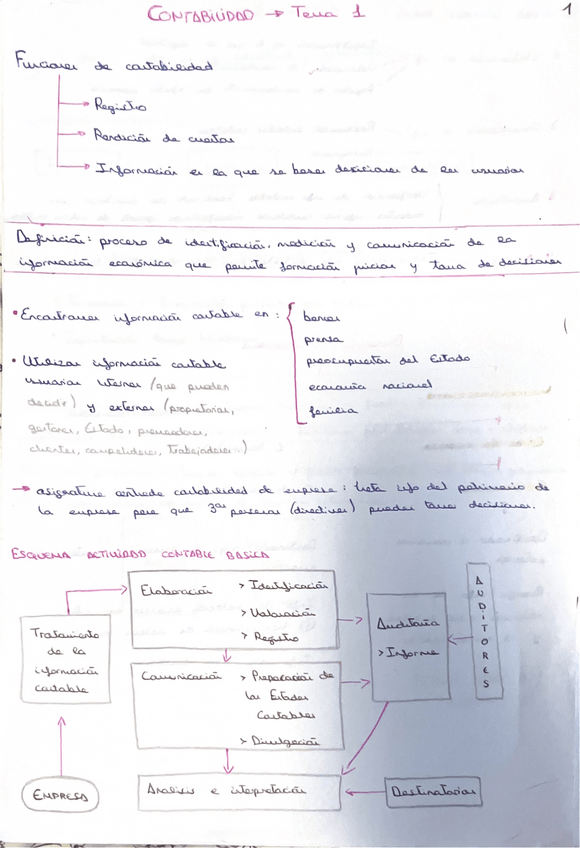 CONTABILIDAD → Tema 1
1
Funciones de contabilidad
→ Registro
→ Rendición de cuentas
→ Información es la que se basan decisiones de los usuarios
Definición: proceso de identificación, medición y comunicación de la
información económica que permite formación juicios y toma de decisiones
• Encontramos información contable en:
bancos
prensa
presupuestos del Estado
economía nacional
familia
• Utilizar información contable
usuarios internos (que pueden
decidir) y externos (propietarios,
gestores, Estado, proveedores,
clientes, competidores, trabajadores...)
→ asignatura centrada contabilidad de empresa: trata info del patrimonio de
la empresa para que 3as personas (directivos) puedan tomar decisiones.
ESQUEMA ACTIVIDAD CONTABLE BASICA
Tratamiento
de la
información
contable
EMPRESA
Elaboración > Identificación
> Valoración
> Registro
Comunicación > Preparación de
los Estados
Contables
> Divulgación
Analisis e interpretación
Auditoría
> Informe
AUDITORES
Destinatarios